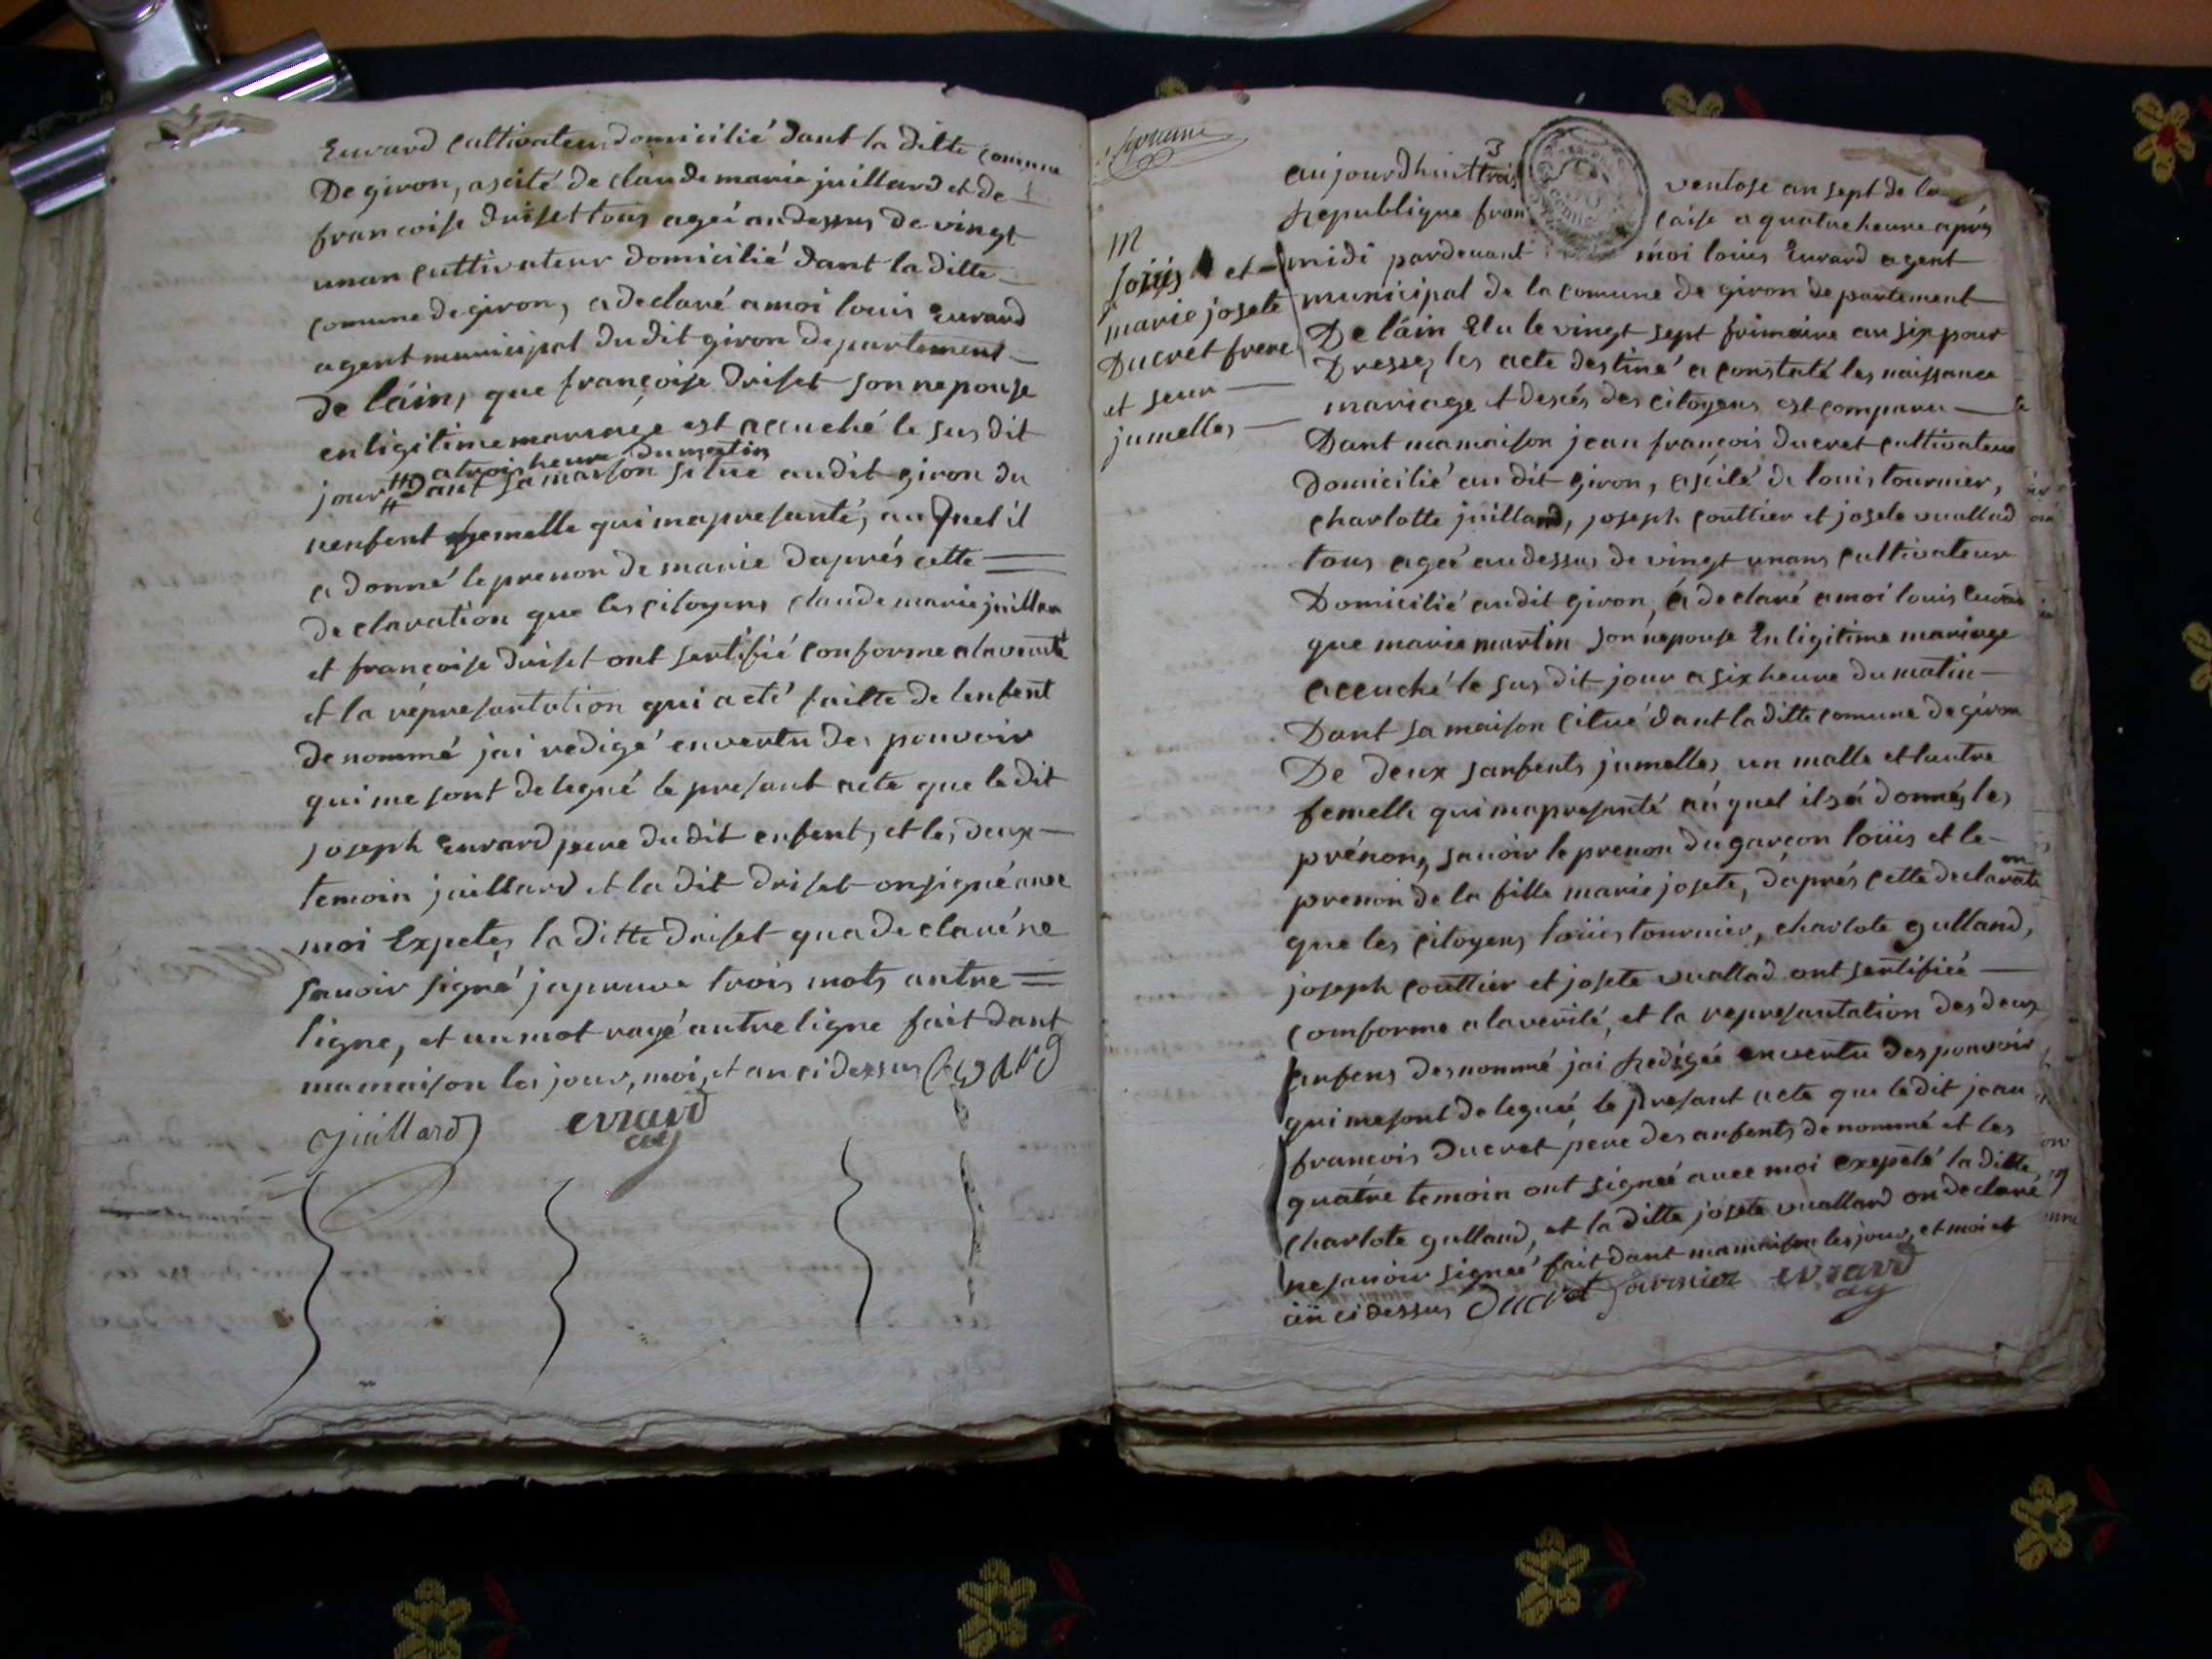 Evrard cultivateur domicilié dant la ditte comune
De giron, ascité de claude marie juillard et de
francoise driset tous ageé audessus de vingt
unan cultivateur domicilié dant la ditte
comune de giron, a declaré a moi louis Evrard
agent municipal du dit giron departement
de láin, que françoise driset son nepouse
enligitime mariage est acuché le sus dit
atrois heure du matin
jour dant sa maison situe audit giron du
nenfent femelle qui mapresanté, au quel il
a donné le prenon de marie daprés cette
declaration que les citoyens claude marie juillar
et francoise driset ont sertifié conforme alaverité
et la répresantation qui a cté faitte de lenfent
denommé jai redigé envertu des pouvoir
qui me sont delegué le presant acte que le dit
joseph Evrard pere du dit enfent, et les deux
temoin juillard et la dit driset on signé avec
moi Expeté, la ditte driset qua declaré ne
savoir signé japruve trois mots antre
ligne, et un mot rayé autre ligne fait dant
mamaison les jour, moi, et an ci dessus
juillard evrard
ag
M
loüis et
marie josete
Ducret frere
et seur
jumelles
3
aujourdhui trois ventose an sept de la
Republique fran caise a quatre heure aprés
midi pardevant moi louis Evrard agent
municipal de la comune de giron departement
De láin Elu le vingt sept frimaire an six pour
Dresser les acte destiné a constaté les naissance
mariage et desés des citoyens est comparu
Dant mamaison jean françois ducret cultivateur
Domicilié audit giron, ascité de louis tournier,
charlotte juilland, joseph couttier et josete vuallad
tous ageé audessus de vingt unans cultivateur
Domicilié audit giron, á declaré a moi louis Evrard
que marie martin son nepouse En ligitime mariage
acuché le sus dit jour a six heure du matin
Dant sa maison citué dant la ditte comune de giron
De deux sanfents jumelles, un malle et lautre
femelle qui mapresanté auquel ils á donnés les
prénon, savoir le prenon du garcon loüis et le
prenon de la fille marie josete, daprés cette declaration
que les citoyens loüis tournier, charlote gulland,
joseph couttier et josete vuallad ont sertifiée
comforme a laverité, et la represantation des deux
anfens desnommé jai Redigée envertu des pouvoir
qui mesont deleguée le presant acte que le dit jean
francois Ducret pere des anfents denommé et les
quatre temoin ont signeé avec moi exepeté la ditte
charlote gulland, et la ditte josete vuallard on declaré
ne savoir signeé fait dant mamaison les jour, et moi et
an ci dessus Ducret tournier evrard
ag